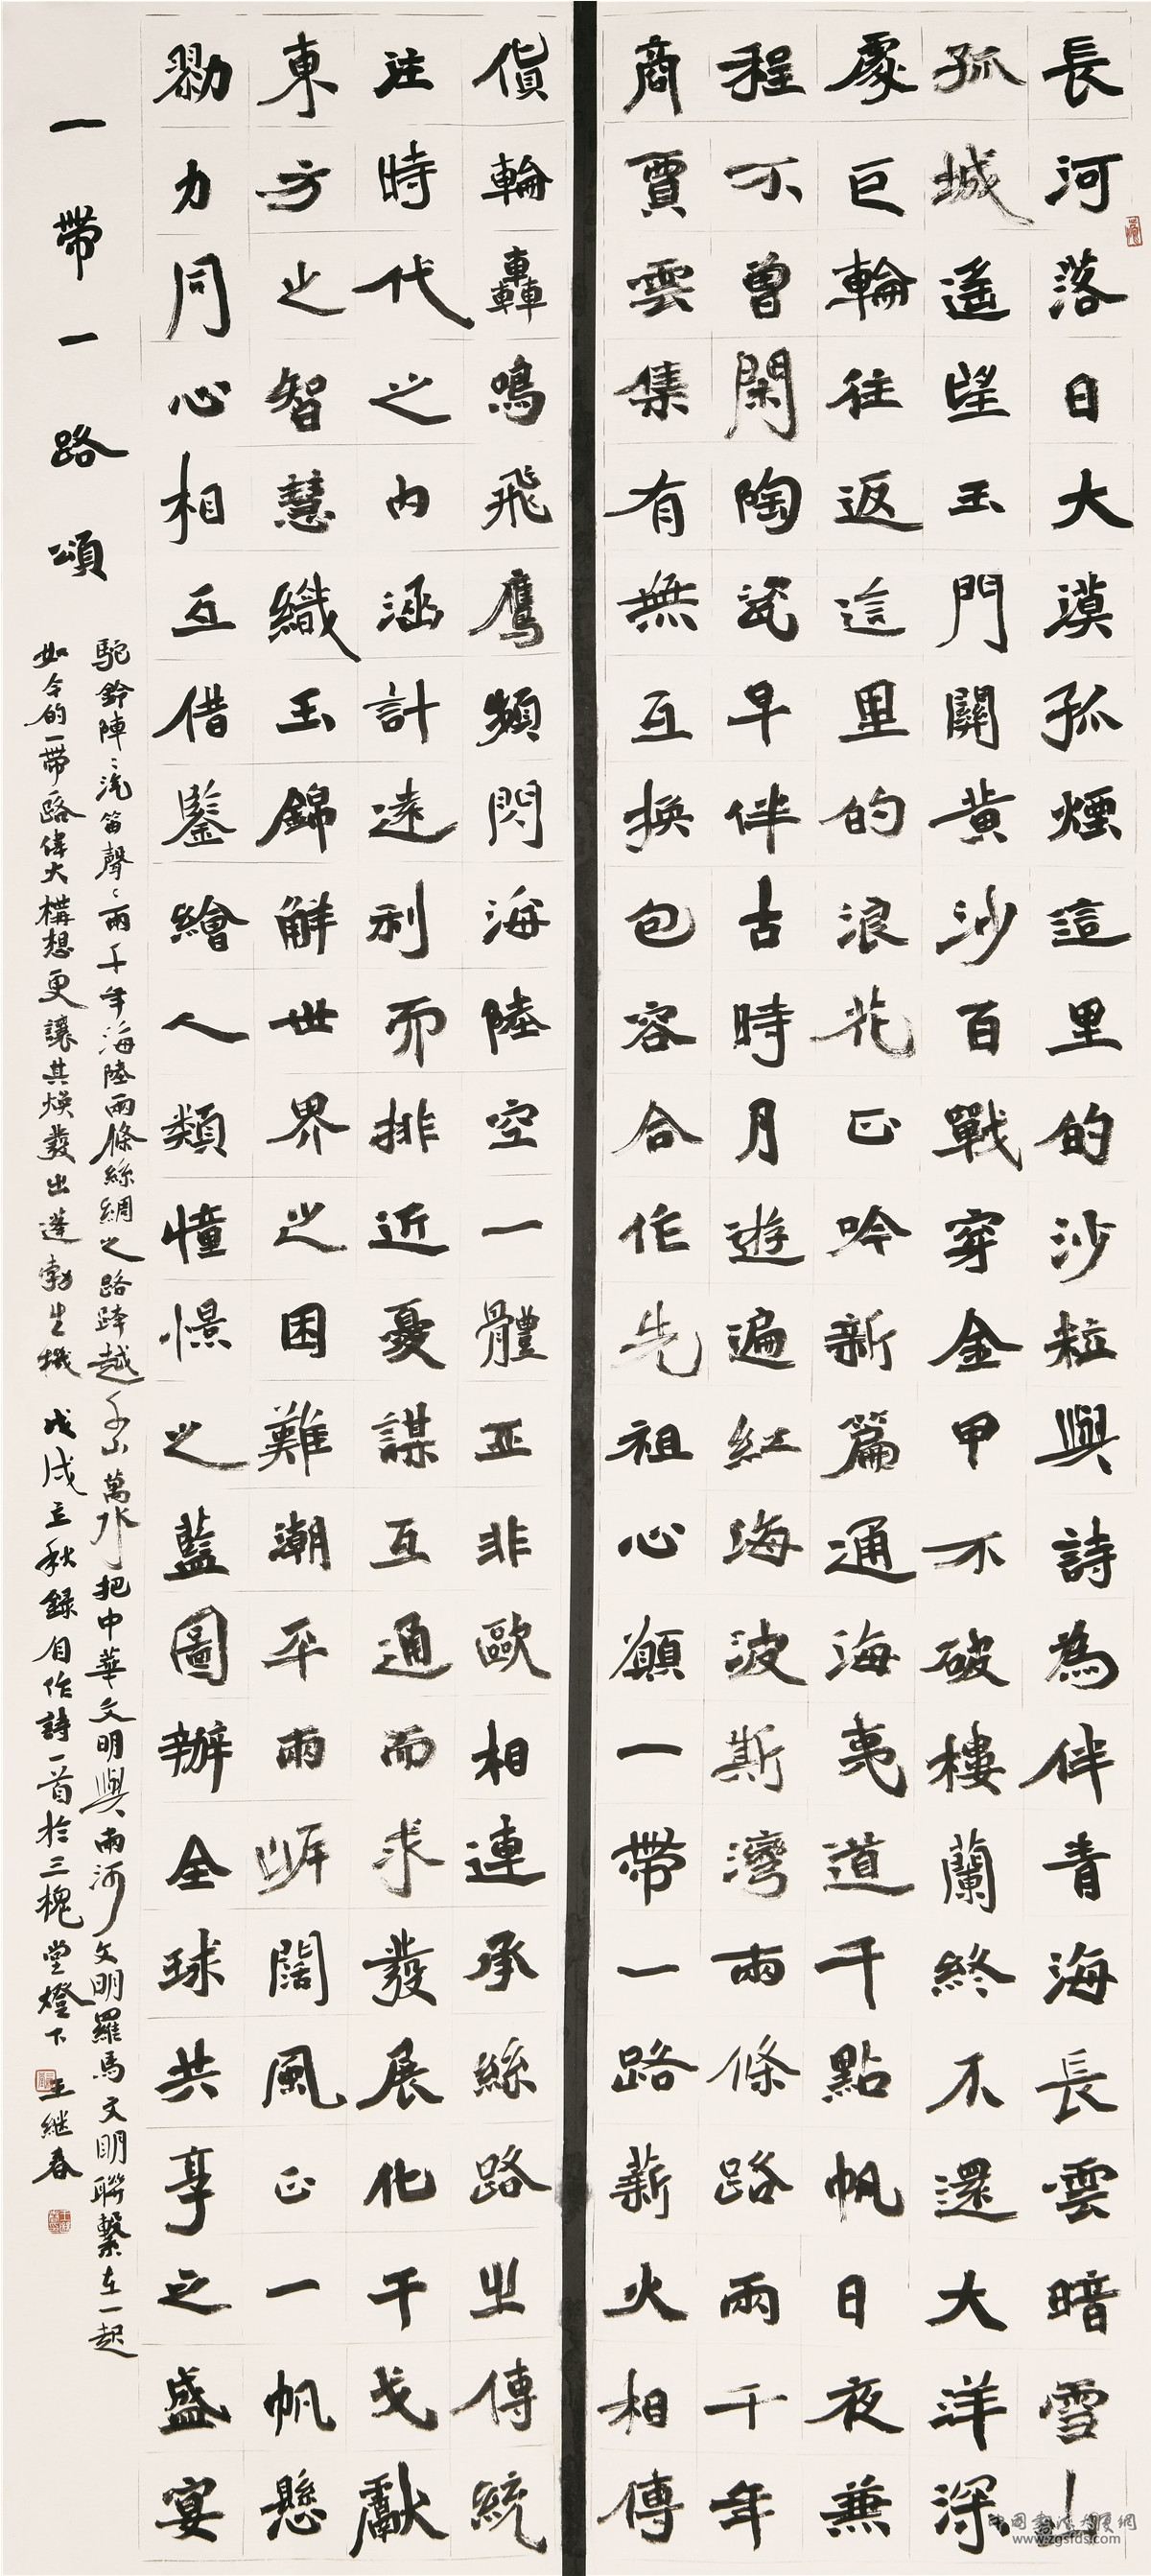 長河落日大漠孤煙這里的沙粒與詩為伴青海長雲暗雪山
孤城遙望玉門關黃沙百戰穿金甲不破樓蘭終不還大洋深
處巨輪往返這里的浪花正吟新篇通海夷道千點帆日夜兼
程不曾閑陶瓷早伴古時月遊遍紅海波斯灣兩條路兩千年
商賈雲集有無互換包容合作先祖心願一帶一路薪火相傳
貨輪轟鳴飛鷹頻閃海陸空一體亞非歐相連承絲路之傳統
注時代之內涵計遠利而排近憂謀互通而求發展化干戈獻
東方之智慧織玉錦解世界之困難潮平兩岸闊風正一帆懸
勠力同心相互借鑒繪人類憧憬之藍圖辦全球共享之盛宴
一帶一路頌
駝鈴陣〻汽笛聲〻兩千年海陸兩條絲綢之路跨越千山萬水把中華文明與兩河文明羅馬文明聯繫在一起
如今的一帶一路偉大構想更讓其煥發出蓬勃生機 戊戌立秋錄自作詩一首於三槐堂燈下 王继春
中国书法大展網
www.zgsfds.com